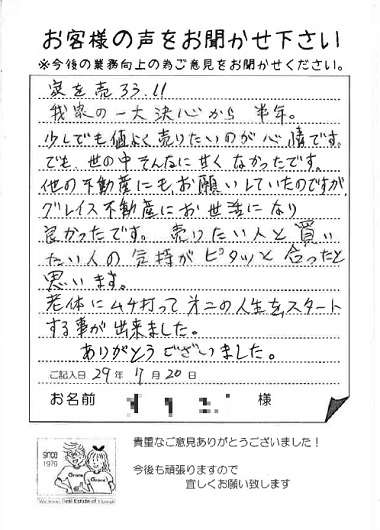 お客様の声をお聞かせ下さい
※今後の業務向上の為ご意見をお聞かせください。
家を売33.!!
我家の一大決心から 半年。
少しでも値よく売りたいのが心情です。
でも、世の中そんなに甘くなかったです。
他の不動産にもお願いしていたのですが、
グレイス不動産にお世話になり
良かったです。売りたい人と買い
たい人の気持がピタッと合ったと
思います。
老体にムチ打って第二の人生をスタート
する事が出来ました。
ありがとうございました。
ご記入日 29年 7月 20日
お名前 様
SINCE
1979
Grace
Grace
貴重なご意見ありがとうございました！
今後も頑張りますので
宜しくお願い致します